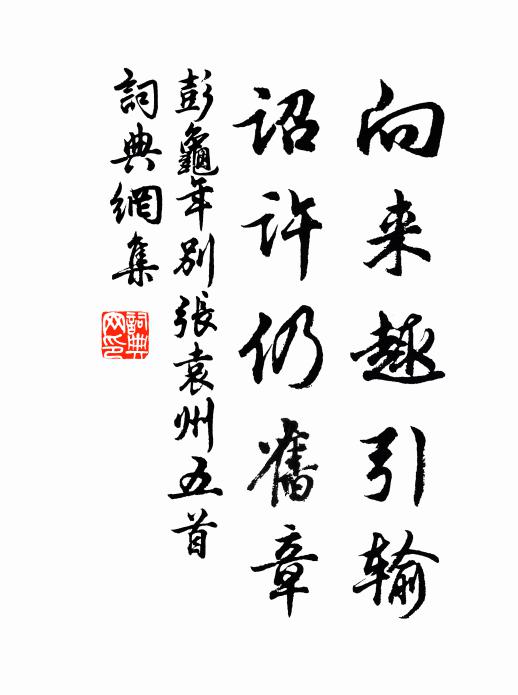 向来趣引输
诏许仍舊章
彭龜年别張袁州五首
詞典網集
詞典网印